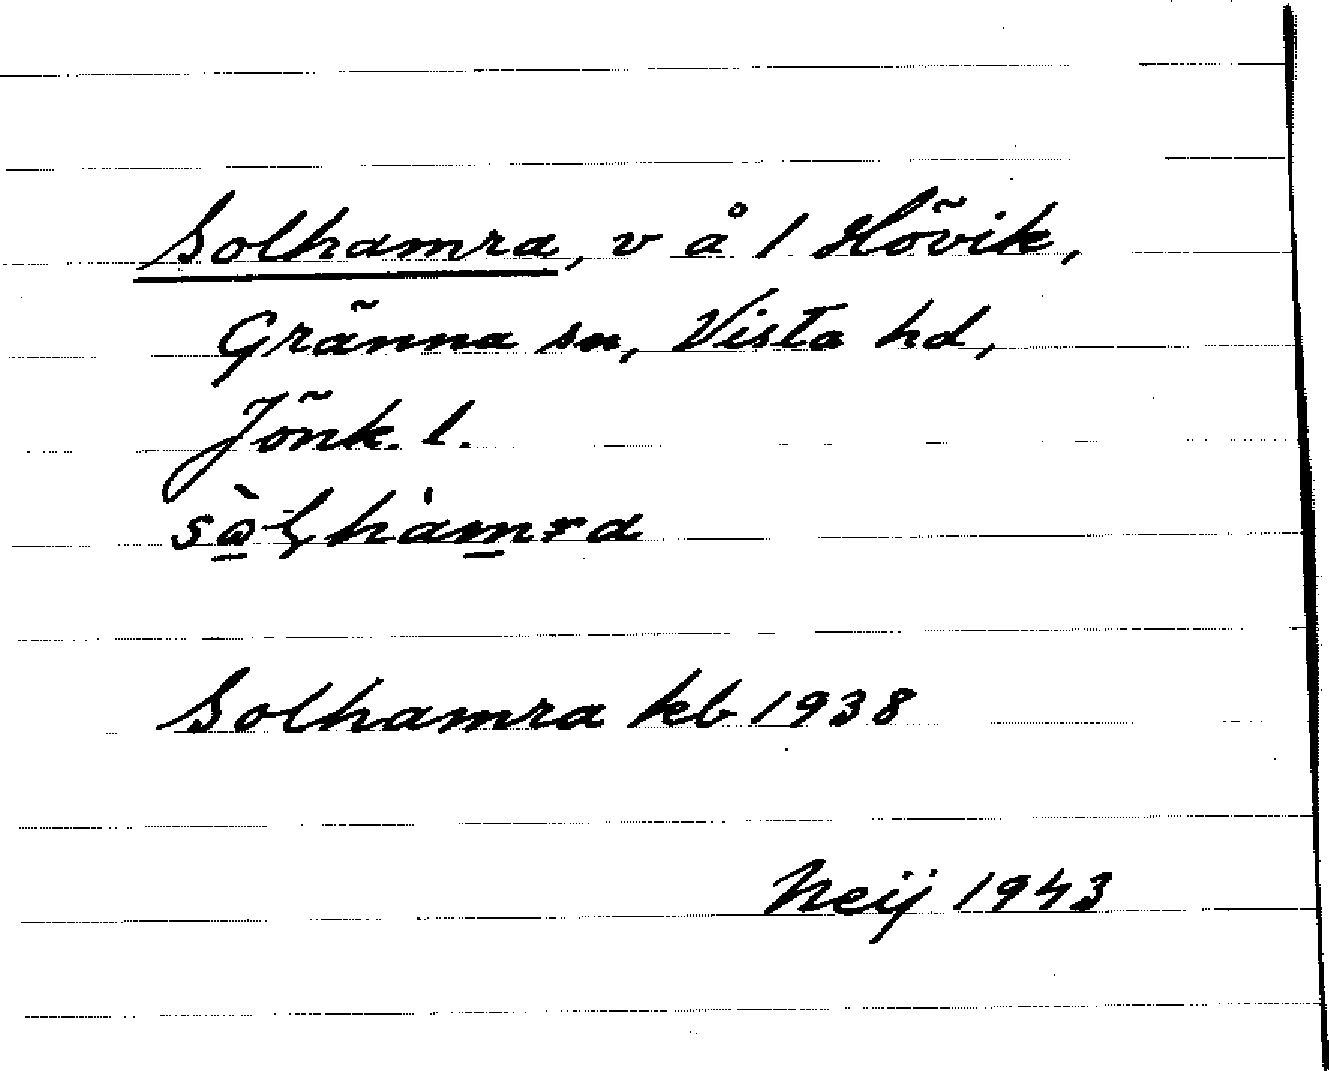 Solhamra, v å 1 Hövik,
Gränna sn, Vista hd,
Jönk. l.
Solhamra kb 1938
Neij 1943